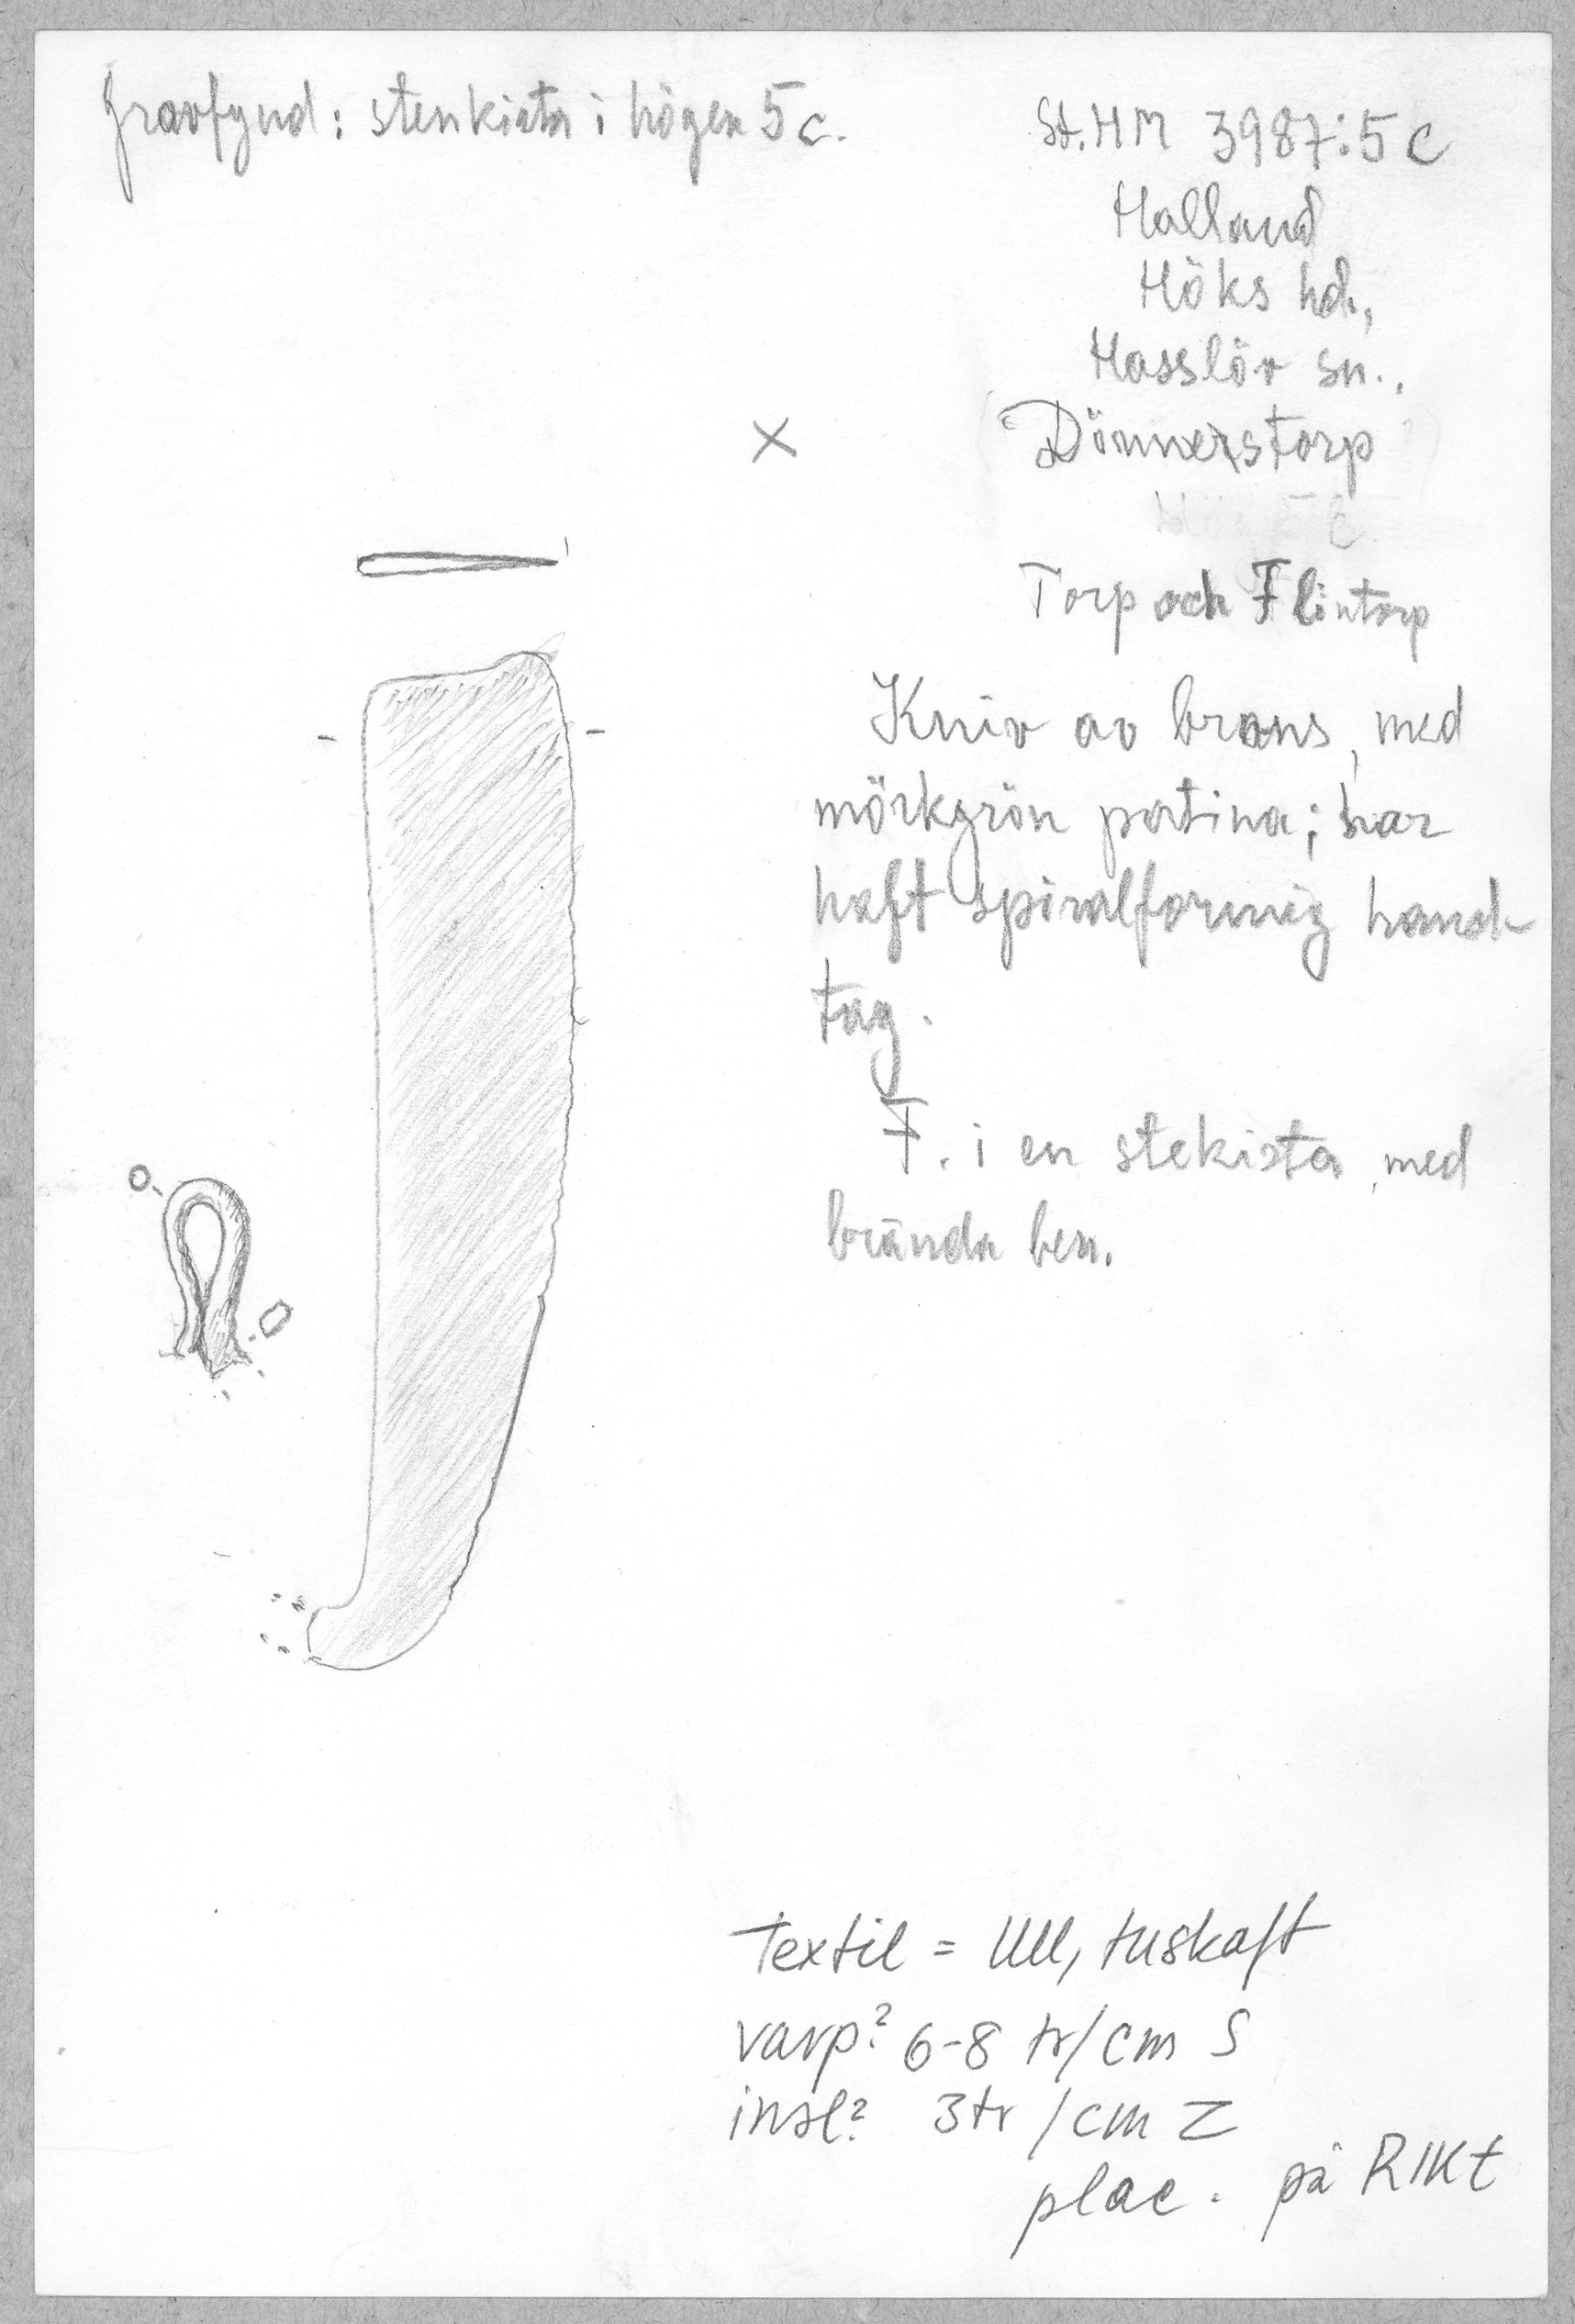 Gravfynd: stenkista i högen 5c.
St.HM 3987:5c
Halland
Höks hd,
Hasslöv sn.,
Dömmerstorp
Torp och Flintorp
Kniv av brons, med
mörkgrön patina; har
haft spiralformig hand-
tag.
F. i en stekista, med
brända ben.
Textil = Ull, tuskaft
varp? 6-8 tr/cm S
insl? 3tr/cm Z
plac. på RIKt